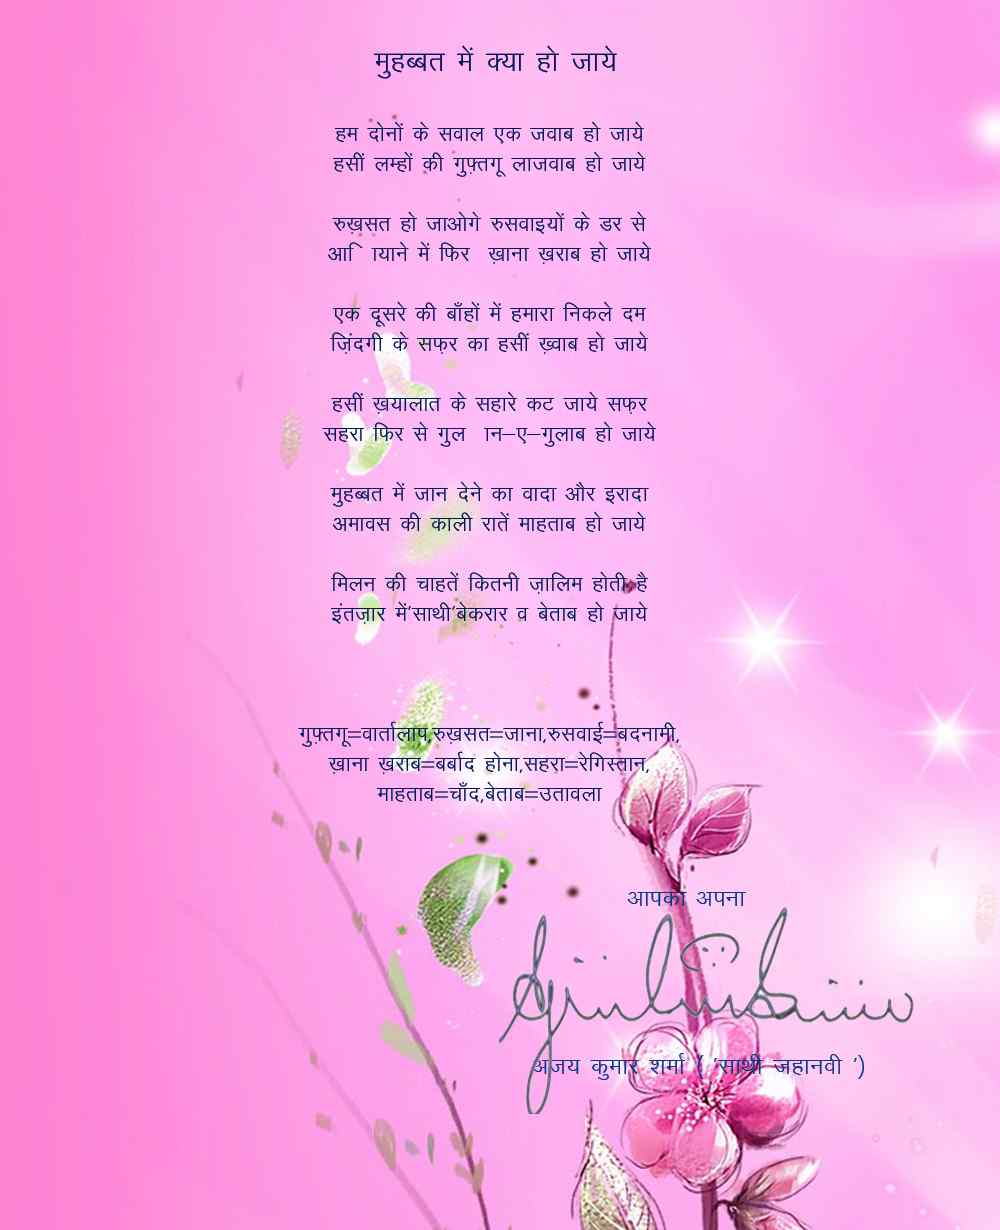 मुहब्बत में क्या हो जाये
हम दोनों के सवाल एक जवाब हो जाये
हसीं लम्हों की गुफ़्तगू लाजवाब हो जाये
रुख़सत हो जाओगे रुसवाइयों के डर से
में फिर ख़ाना ख़राब हो जाये
एक दूसरे की बाँहों में हमारा निकले दम
ज़िंदगी के सफ़र का हसीं ख़्वाब हो जाये
हसीं ख़यालात के सहारे कट जाये सफ़र
सहरा फिर से गुल ान–ए–गुलाब हो जाये
मुहब्बत में जान देने का वादा और इरादा
अमावस की काली रातें माहताब हो जाये
मिलन की चाहतें कितनी ज़ालिम होती है
इंतज़ार में'साथी'बेकरार व बेताब हो जाये
गुफ़्तगू=वार्तालाप,रुख़सत=जाना,रुसवाई=बदनामी,
ख़ाना ख़राब=बर्बाद होना,सहरा=रेगिस्तान,
माहताब=चाँद,बेताब=उतावला
आपका अपना
अजय कुमार शर्मा ( 'साथी जहानवी ')